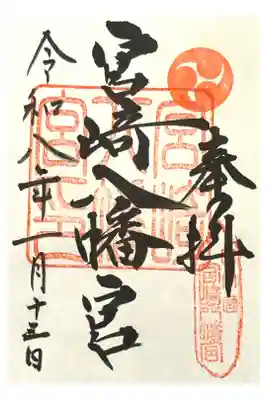 奉拝
宮崎八幡宮
令和八年一月十三日